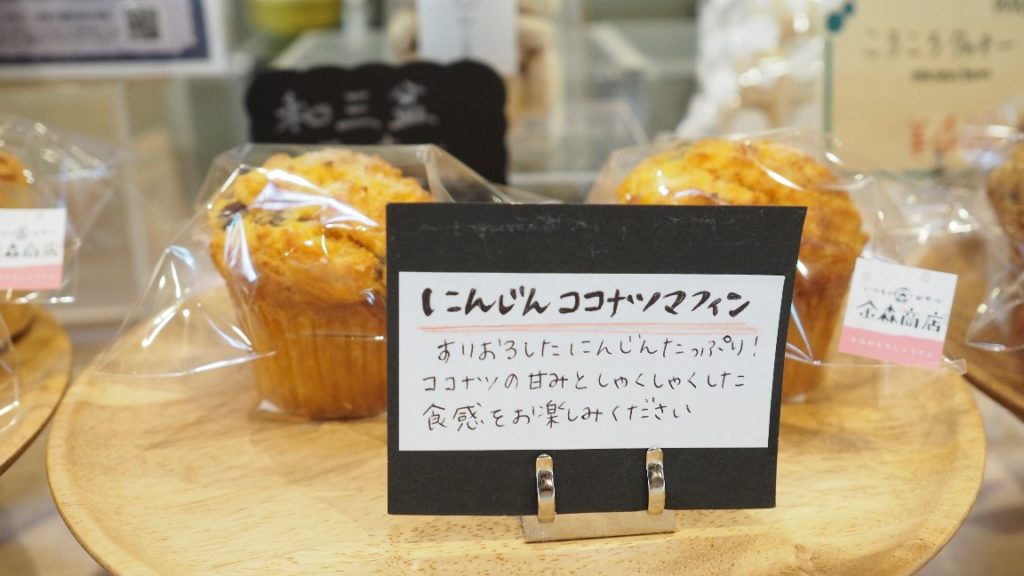 和三盆
ころころクッキー
にんじんココナツマフィン
すりおろしたにんじんたっぷり!
ココナツの甘みとしゃくしゃくした
食感をお楽しみください
金森商店
金森商店